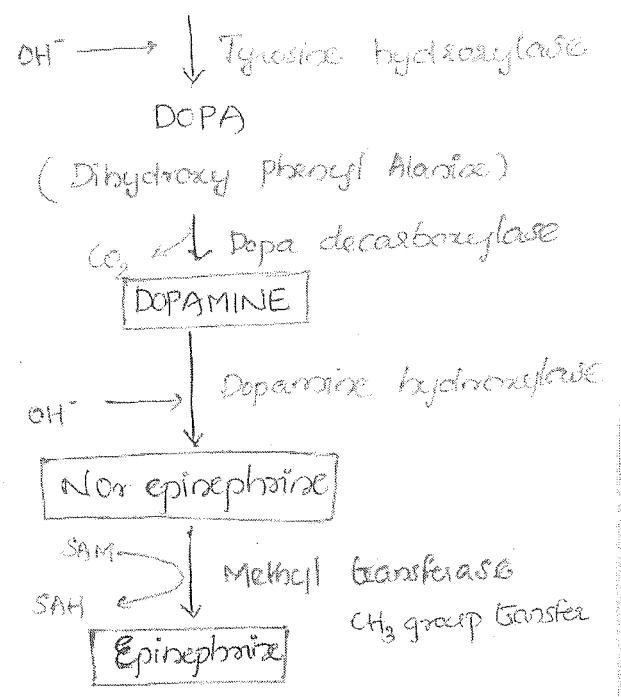 OH⁻ → Tyrosine hydroxylase
DOPA
(Dihydroxy Phenyl Alanine)
CO₂ Dopa decarboxylase
DOPAMINE
Dopamine hydroxylase
OH⁻ →
Nor epinephrine
SAM
Methyl transferase
SAH
CH₃ group transfer
Epinephrine